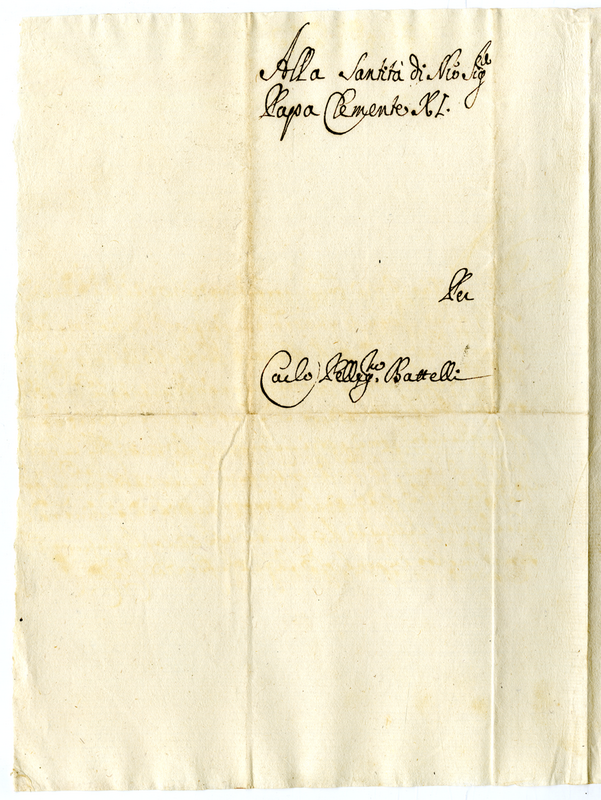 Alla Santità di Nr̃o Sig.re
Papa Clemente XI.
Per
Carlo Pelleg.no Battelli